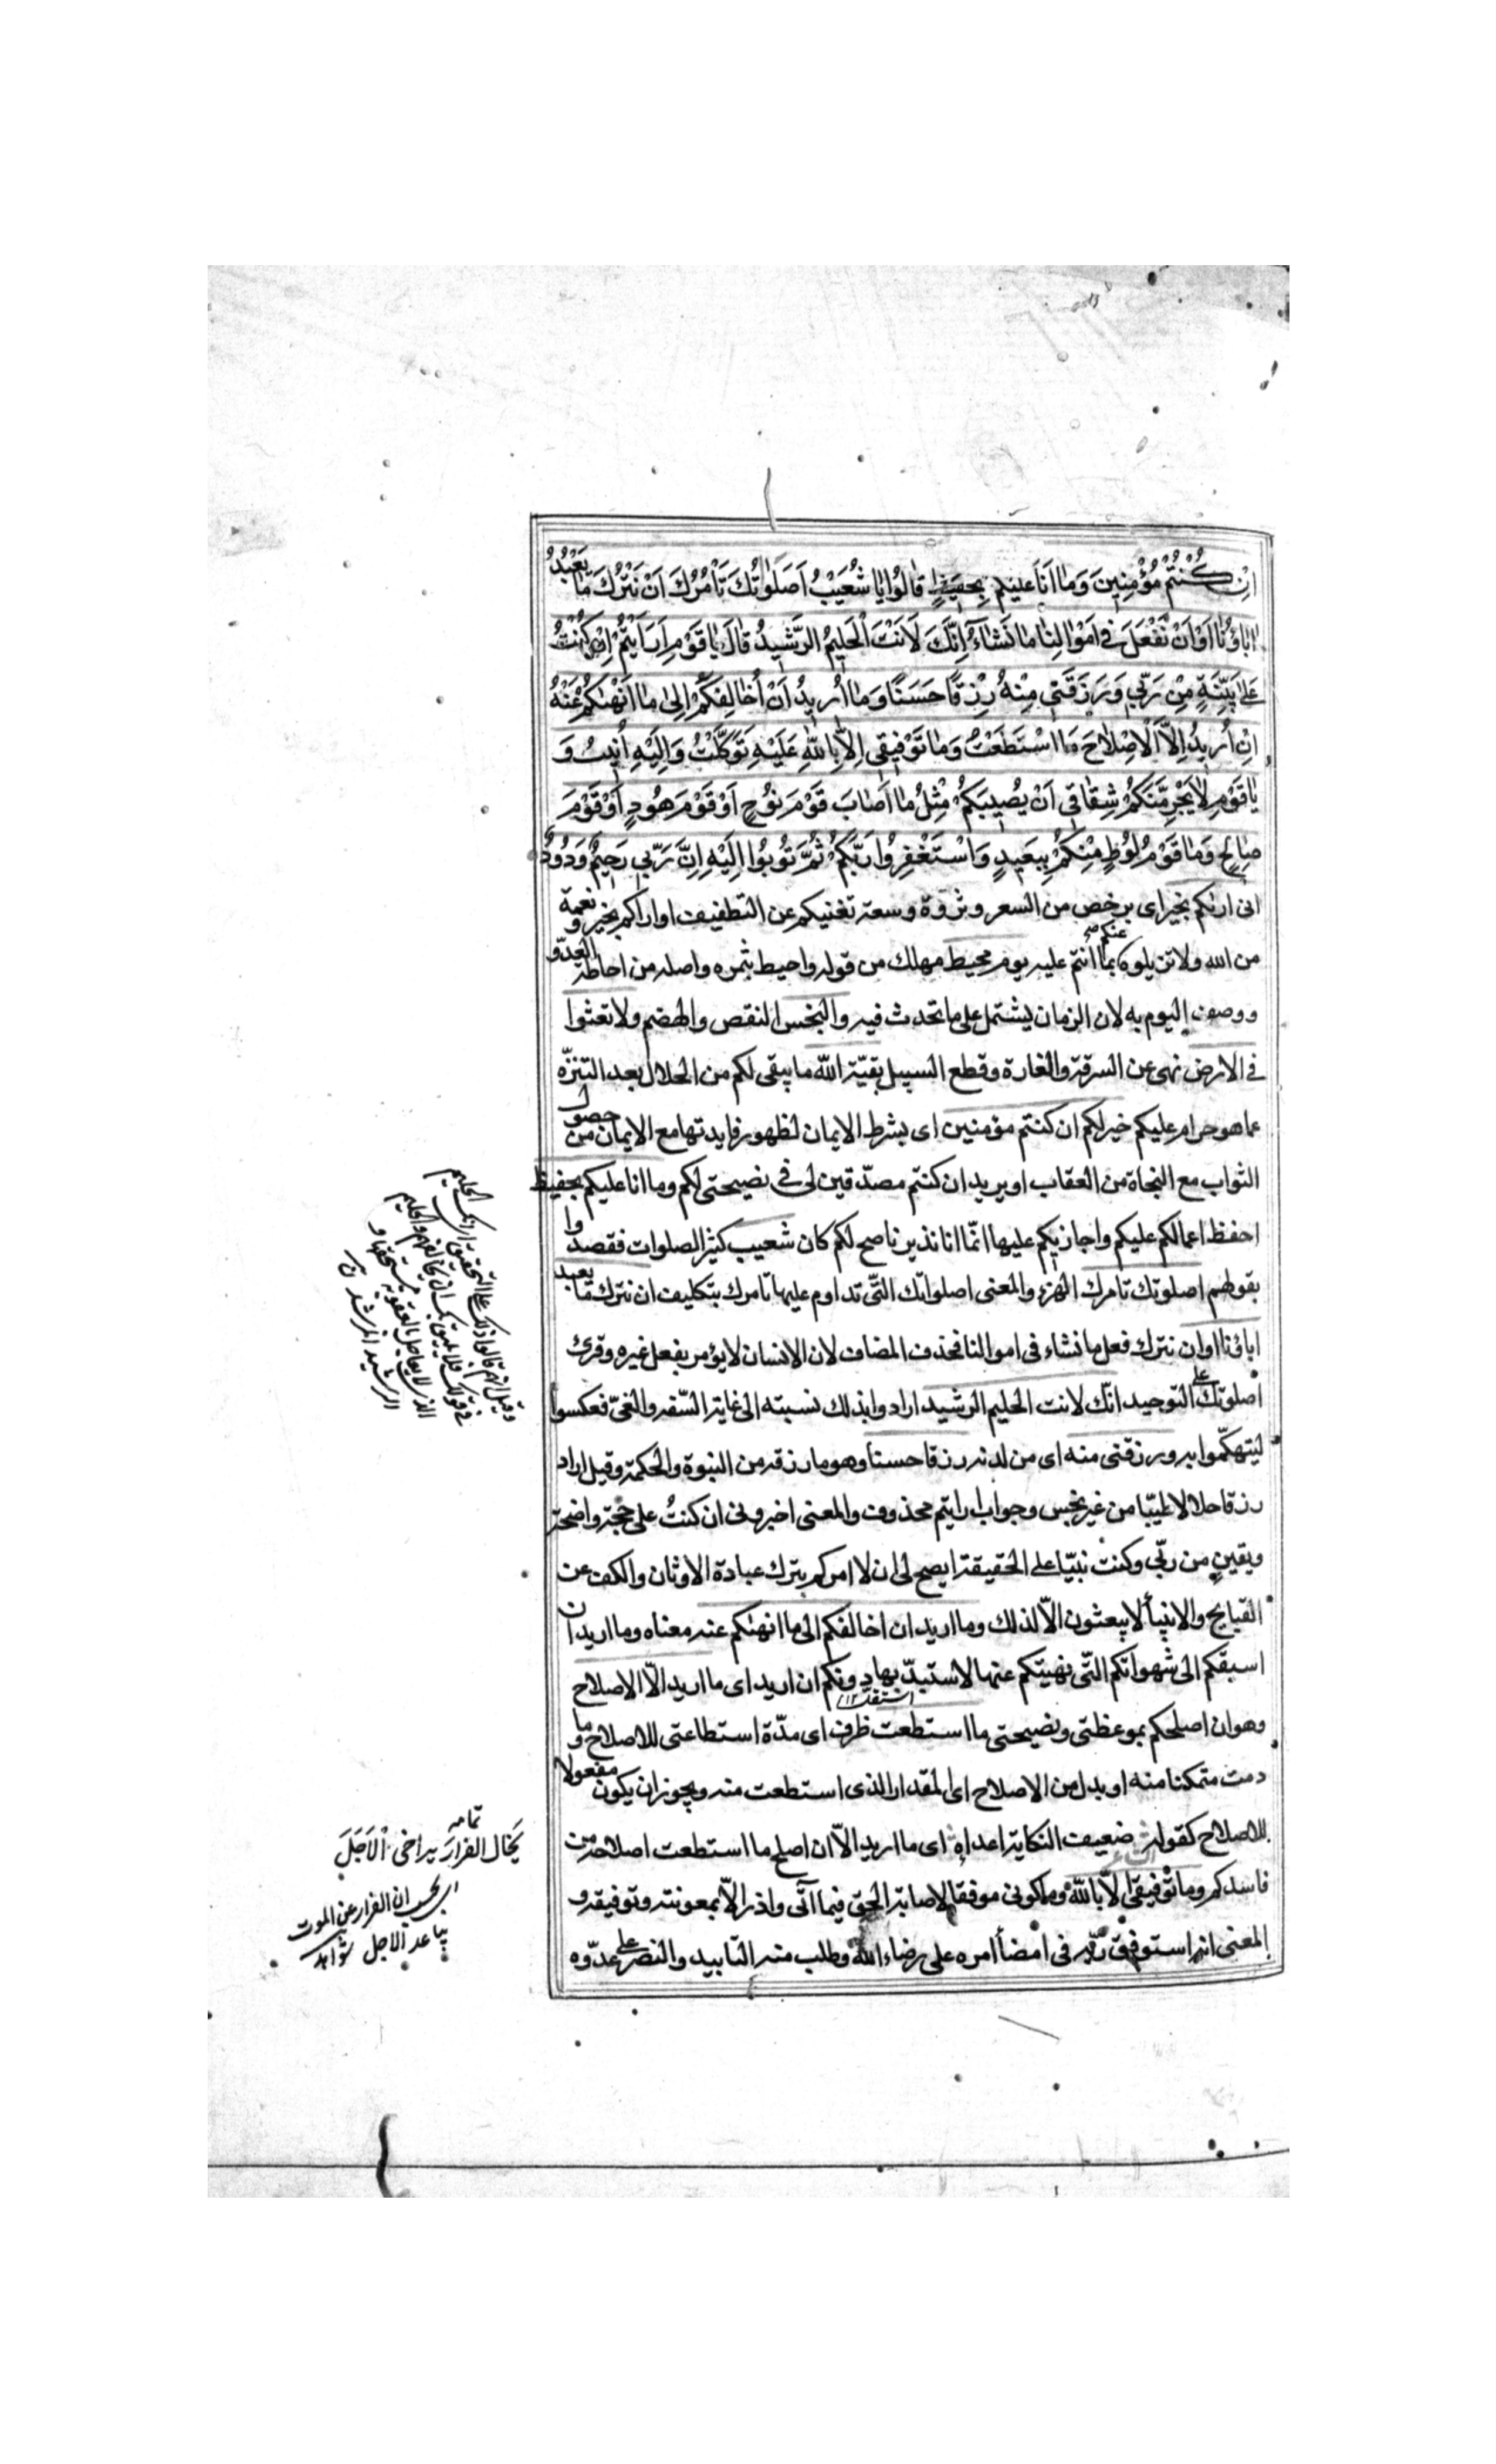 اِنْ كُنْتُمْ مُؤْمِنِينَ وَمٰا اَنَا عليكم بِحَفيظٍ قٰالُوا يٰا شُعَيْبُ اَصَلٰوتُكَ تَأْمُرُكَ اَنْ نَتْرُكَ مٰا يَعْبُدُ
اٰبٰاؤُنٰا اَوْ اَنْ نَفْعَلَ فى اَمْوٰالِنٰا مٰا نَشٰاۤءُ اِنَّكَ لَاَنْتَ الْحَليمُ الرَّشيدُ قٰالَ يٰا قَوْمِ اَرَاَيْتُمْ اِنْ كُنْتُ
عَلىٰ بَيِّنَةٍ مِنْ رَبّى وَرَزَقَنى مِنْهُ رِزْقًا حَسَنًا وَمٰا اُريدُ اَنْ اُخٰالِفَكُمْ اِلىٰ مٰا اَنْهٰيكُمْ عَنْهُ
اِنْ اُريدُ اِلاَّ الْاِصْلاٰحَ مَا اسْتَطَعْتُ وَمٰا تَوْفيقى اِلاّٰ بِاللّٰهِ عَلَيْهِ تَوَكَّلْتُ وَاِلَيْهِ اُنيبُ وَ
يٰا قَوْمِ لاٰ يَجْرِمَنَّكُمْ شِقٰاقى اَنْ يُصيبَكُمْ مِثْلُ مٰا اَصٰابَ قَوْمَ نوُحٍ اَوْ قَوْمَ هوُدٍ اَوْ قَوْمَ
صٰالِحٍ وَمٰا قَوْمُ لوُطٍ مِنْكُمْ بِبَعيدٍ وَاسْتَغْفِرُوا رَبَّكُمْ ثُمَّ تُوبُوا اِلَيْهِ اِنَّ رَبّى رَحيمٌ وَدُودٌ
انى اريٰكم بخير اى برخص من السعر وثروة وسعة تغنيكم عن التطفيف او اراكم بخير ونعمة
من الله ولا تزيلوه عنكم بما انتم عليه يوم محيط مهلك من قوله واحيط بثمره واصله من احاطة العدّو
ووصف اليوم به لان الزمان يشتمل على ما تحدث فيه والبخس النقص والهضم ولا تعثوا
فى الارض نهى عن السرقة والغارة وقطع السبيل بقيّة الله ما يبقى لكم من الحلال بعد التنزّه
عما هو حرام عليكم خير لكم ان كنتم مؤمنين اى بشرط الايمان لظهور فايدتها مع الايمان من حصول
الثواب مع النجاة من العقاب او يريد ان كنتم مصدّقين لى فى نصيحتى لكم وما انا عليكم بحفيظ
احفظ اعمالكم عليكم واجازيكم عليها انّما انا نذير ناصح لكم كان شعيب كثير الصلوات فقصدوا
بقولهم اصلوتك تامرك الهزء والمعنى اصلواتك التّى تداوم عليها تامرك بتكليف ان نترك ما يعبد
اباؤنا او ان نترك فعل ما نشاء فى اموالنا فحذف المضاف لان الانسان لا يؤمر بفعل غيره وقرئ
اصلوتك على التوحيد انّك لانت الحليم الرشيد ارادوا بذلك نسبته الى غاية السّفه والغىّ فعكسوا
ليتهكّموا به ورزقنى منه اى من لدنه رزقا حسنا وهو ما رزقه من النبوة والحكمة وقيل اراد
رزقا حلالا طيبّا من غير بخس وجواب ارايتم محذوف والمعنى اخبرونى ان كنتُ على حجّة واضحة
ويقينٍ من ربّى وكنتُ نبيّا على الحقيقة ايصح لى ان لا امركم بترك عبادة الاوثان والكف عن
القبايح والانبيأ لا يبعثون الاّ لذلك وما اريد ان اخالفكم الى ما انهيٰكم عنه معناه وما اريد ان
اسبقكم الى شهواتكم التّى نهيتكم عنها لاستبدّ بها دونكم ان اريد اى ما اريد الاّ الاصلاح
وهو ان اصلحكم بموعظتى ونصيحتى ما استطعت ظرف اى مدّة استطاعتى للاصلاح وما
دمت متمكنا منه او بدل من الاصلاح اى المقدار الذى استطعت منه ويجوز ان يكون مفعولا
للاصلاح كقوله ضعيف النكاية اعداءه اى ما اريد الاّ ان اصلح ما استطعت اصلاحه من
فاسدكم وما توفيقى الاّ بالله وما كونى موفقا لاصابة الحق فيما آتى واذر الاّ بمعونته وتوفيقه و
المعنى انه استوفق ربّه فى امضأ امره على رضاء الله وطلب منه التاييد والنصر على عدّوه
وقيل انهم قالوا ذلك على التحقيق اى انك الحليم
فى قومك فلا يليق بك ان تخالفهم والحليم
الذى لا يعاجل بالعقوبة مستحقها و
الرشيد المرشد
تمامه
يَخال الفرارَ يراخى الْاَجَلَ
اى يحسب ان الفرار عن الموت
يباعد الاجل شواهد